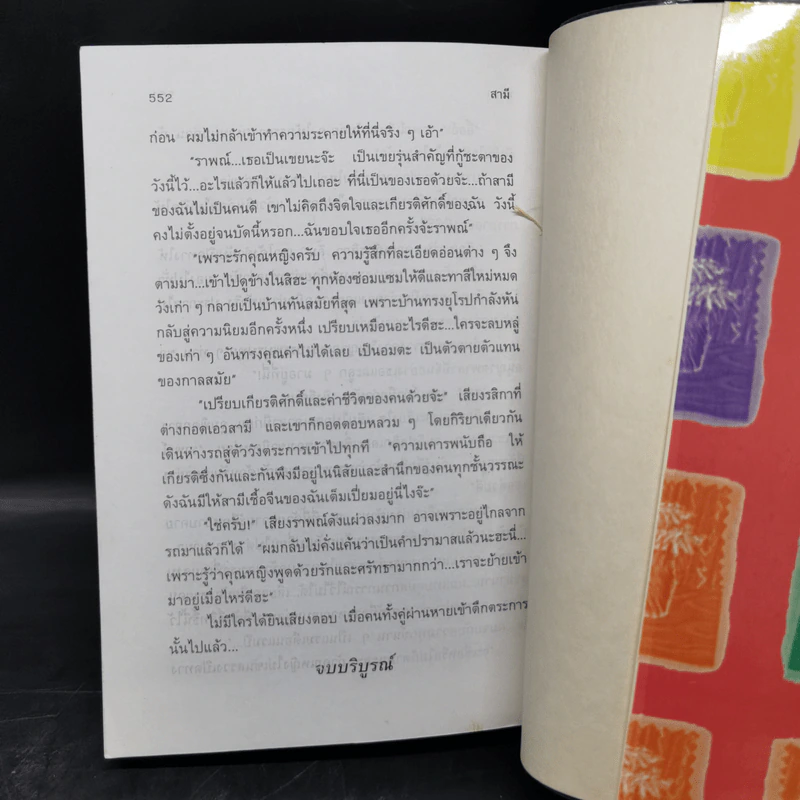 552
สามี
ก่อน ผมไม่กล้าเข้าทำความระคายให้ที่นี่จริง ๆ เอ้า"
"ราพณ์...เธอเป็นเขยนะจ๊ะ เป็นเขยรุ่นสำคัญที่กู้ชะตาของ
วังนี้ไว้...อะไรแล้วก็ให้แล้วไปเถอะ ที่นี่เป็นของเธอด้วยจ้ะ...ถ้าสามี
ของฉันไม่เป็นคนดี เขาไม่คิดถึงจิตใจและเกียรติศักดิ์ของฉัน วังนี้
คงไม่ตั้งอยู่จนบัดนี้หรอก...ฉันขอบใจเธออีกครั้งจ้ะราพณ์"
"เพราะรักคุณหญิงครับ ความรู้สึกที่ละเอียดอ่อนต่าง ๆ จึง
ตามมา...เข้าไปดูข้างในสิฮะ ทุกห้องซ่อมแซมให้ดีและทาสีใหม่หมด
วังเก่า ๆ กลายเป็นบ้านทันสมัยที่สุด เพราะบ้านทรงยุโรปกำลังหัน
กลับสู่ความนิยมอีกครั้งหนึ่ง เปรียบเหมือนอะไรดีฮะ...ใครจะลบหลู่
ของเก่า ๆ อันทรงคุณค่าไม่ได้เลย เป็นอมตะ เป็นตัวตายตัวแทน
ของกาลสมัย"
"เปรียบเกียรติศักดิ์และค่าชีวิตของคนด้วยจ้ะ" เสียงรสิกาที่
ต่างกอดเอวสามี และเขาก็กอดตอบหลวม ๆ โดยกิริยาเดียวกัน
เดินห่างรถสู่ตัววังตระการเข้าไปทุกที "ความเคารพนับถือ ให้
เกียรติซึ่งกันและกันพึงมีอยู่ในนิสัยและสำนึกของคนทุกชั้นวรรณะ
ดังฉันมีให้สามีเชื้อจีนของฉันเต็มเปี่ยมอยู่นี่ไงจ๊ะ"
"ใช่ครับ!" เสียงราพณ์ดังแผ่วลงมาก อาจเพราะอยู่ไกลจาก
รถมาแล้วก็ได้ "ผมกลับไม่คั่งแค้นว่าเป็นคำปรามาสแล้วนะฮะนี่...
เพราะรู้ว่าคุณหญิงพูดด้วยรักและศรัทธามากกว่า...เราจะย้ายเข้า
มาอยู่เมื่อไหร่ดีฮะ"
ไม่มีใครได้ยินเสียงตอบ เมื่อคนทั้งคู่ผ่านหายเข้าตึกตระการ
นั้นไปแล้ว...
จบบริบูรณ์